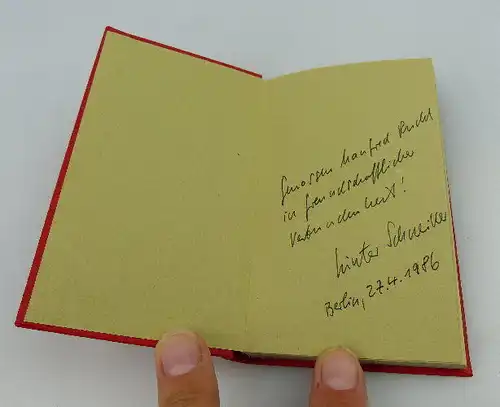 Genossen Manfred
in freundschaftlicher
Verbundenheit!
Günter
Berlin, 27.4.1986